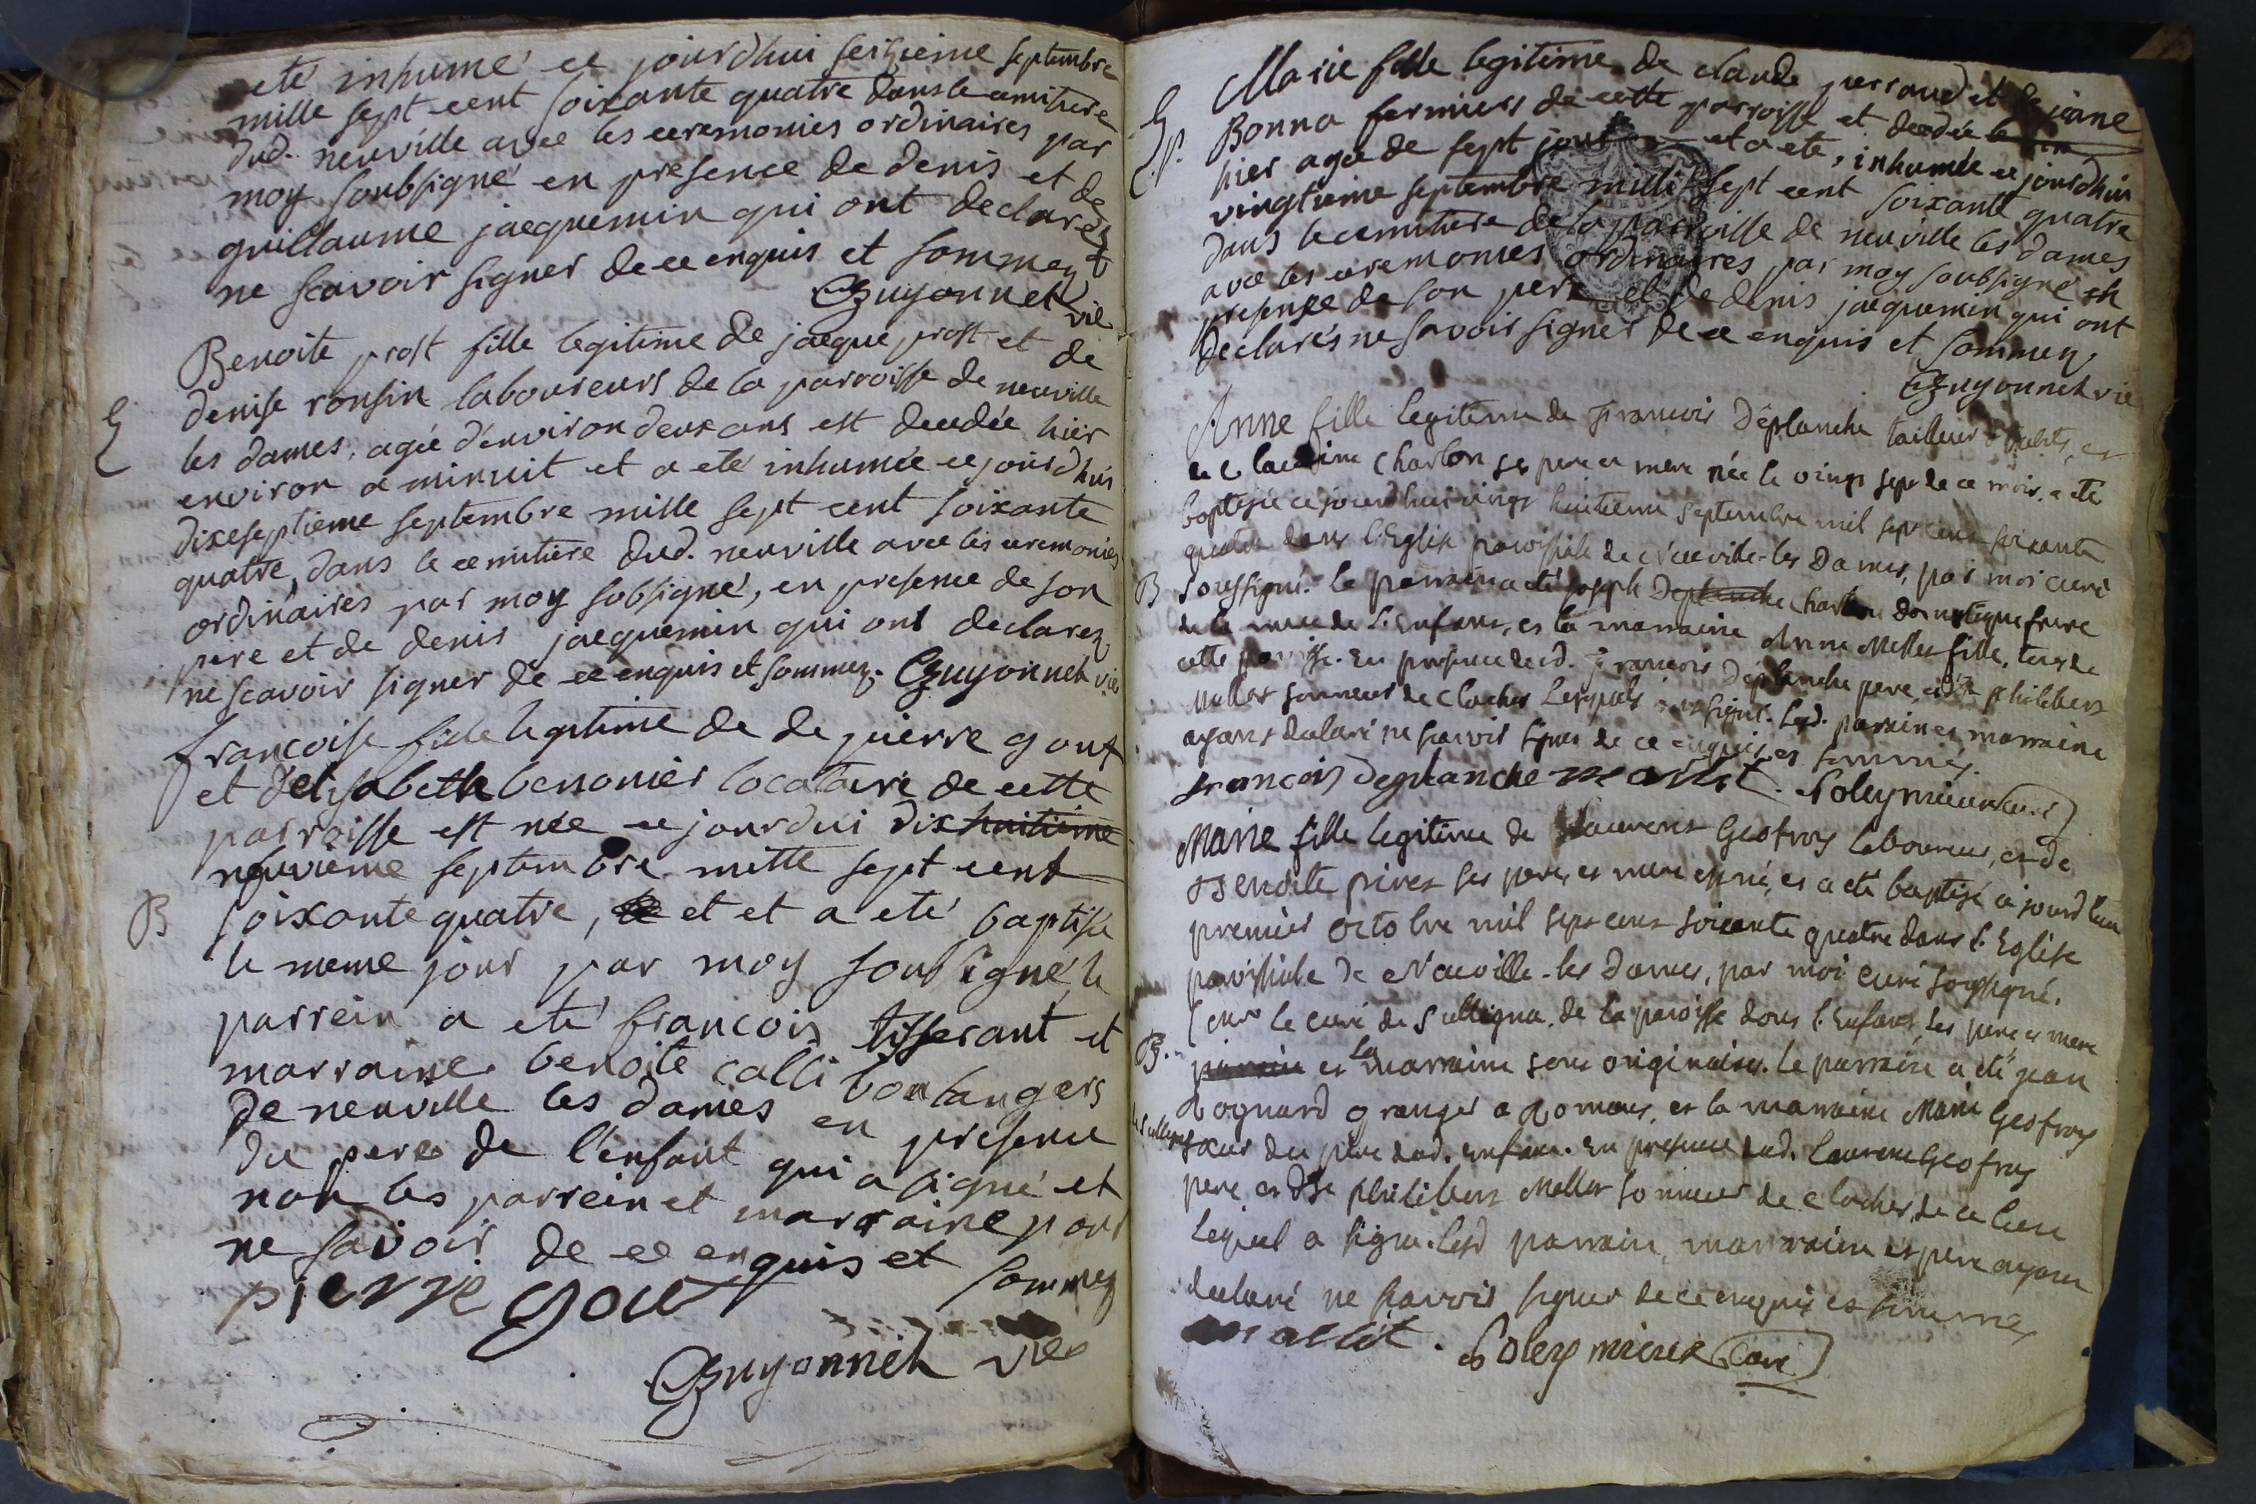 eté inhumé ce jourdhui seizieme septembre
mille sept cent soixante quatre dans le cemitiere
dud. neuville avec les ceremonies ordinaires par
moy soubsigné en presence de denis et de
guillaume jacquemin qui ont declaré
ne scavoir signer de ce enquis et sommez
Guyonnet vic
Benoite prost fille legitime de jacque prost et de
denise ronsin laboureurs de la parroisse de neuville
les dames, agée d'environ deux ans est decedée hier
environ a minuit et a eté inhumée ce jourdhui
dixseptieme septembre mille sept cent soixante
quatre, dans le cemitiere dud. neuville avec les ceremonies
ordinaires par moy sobsigné, en presence de son
pere et de denis jacquemin qui ont declarez
ne scavoir signer de ce enquis et sommez. Guyonnet vic
francoise fille legitime de de pierre gout
et d'elisabeth benonier locataire de cette
parroisse est née ce jourdui dixhuitieme
neuvieme septembre mille sept cent
B soixante quatre, et et a eté baptisée
le meme jour par moy soubsigné, le
parrein a eté francois tisserant et
marraine benoite calli boulangers
de neuville les dames en presence
du pere de l'enfant qui a signé et
non les parrein et marraine pour
ne savoir de ce enquis et sommez
pierre gout
Guyonnet vic
Marie fille legitime de claude perraud et de jeane
Bonna fermiers de cette parroisse et decedée le
hier agée de sept jours et a eté, inhumée ce jourdhui
vingtieme septembre mille sept cent soixante quatre
dans le cemitiere de la parroisse de neuville les dames
avec les ceremonies ordinaires par moy soubsigné en
presence de son pere et de denis jacquemin qui ont
declarés ne savoir signer de ce enquis et sommez
Guyonnet vic
Anne fille legitime de Francois Déplanche tailleur d'habits, et
de Claudine Charlon ses pere et mere née le vingt sept de ce mois, a eté
baptisée ce jourdhui vingt huitieme septembre mil sept cent soixante
quatre dans l'Eglise paroissiale de Neuville-les Dames, par moi curé
B soussigné. le parrain a été joseph Deplanche Charlon domestique frere
de la mere de l'enfant, et la marraine Anne Mellet fille, tous de
cette paroisse. En presence dud. Francois Déplanche pere et de philibert
Mellet sonneur de cloches lesquels ont signé. lesd. parrain et marraine
ayant declaré ne savoir signer de ce enquis et sommés.
francois deplanche mellet. Soleymieux curé
Marie fille legitime de Laurent Geofroy laboureur, et de
Benoite pivet ses pere et mere est née, et a eté baptisé ce jourd'hui
premier octobre mil sept cent soixante quatre dans l'Eglise
paroissiale de Neuville-les Dames, par moi curé soussigné.
le curé de Sulligna, de la paroisse dont l'Enfant, les pere et mere
B. parrain et la marraine sont originaires. le parrain a été jean
Rognard granger a Romans, et la marraine Marie Geofroy
soeur du pere dud. enfant. En presence dud. Laurent Geofroy
pere et de philibert Mellet sonneur de cloches de ce lieu
lequel a signé. lesd parrain, marraine et pere ayant
declaré ne savoir signer de ce enquis et sommés
mellet. Soleymieux curé